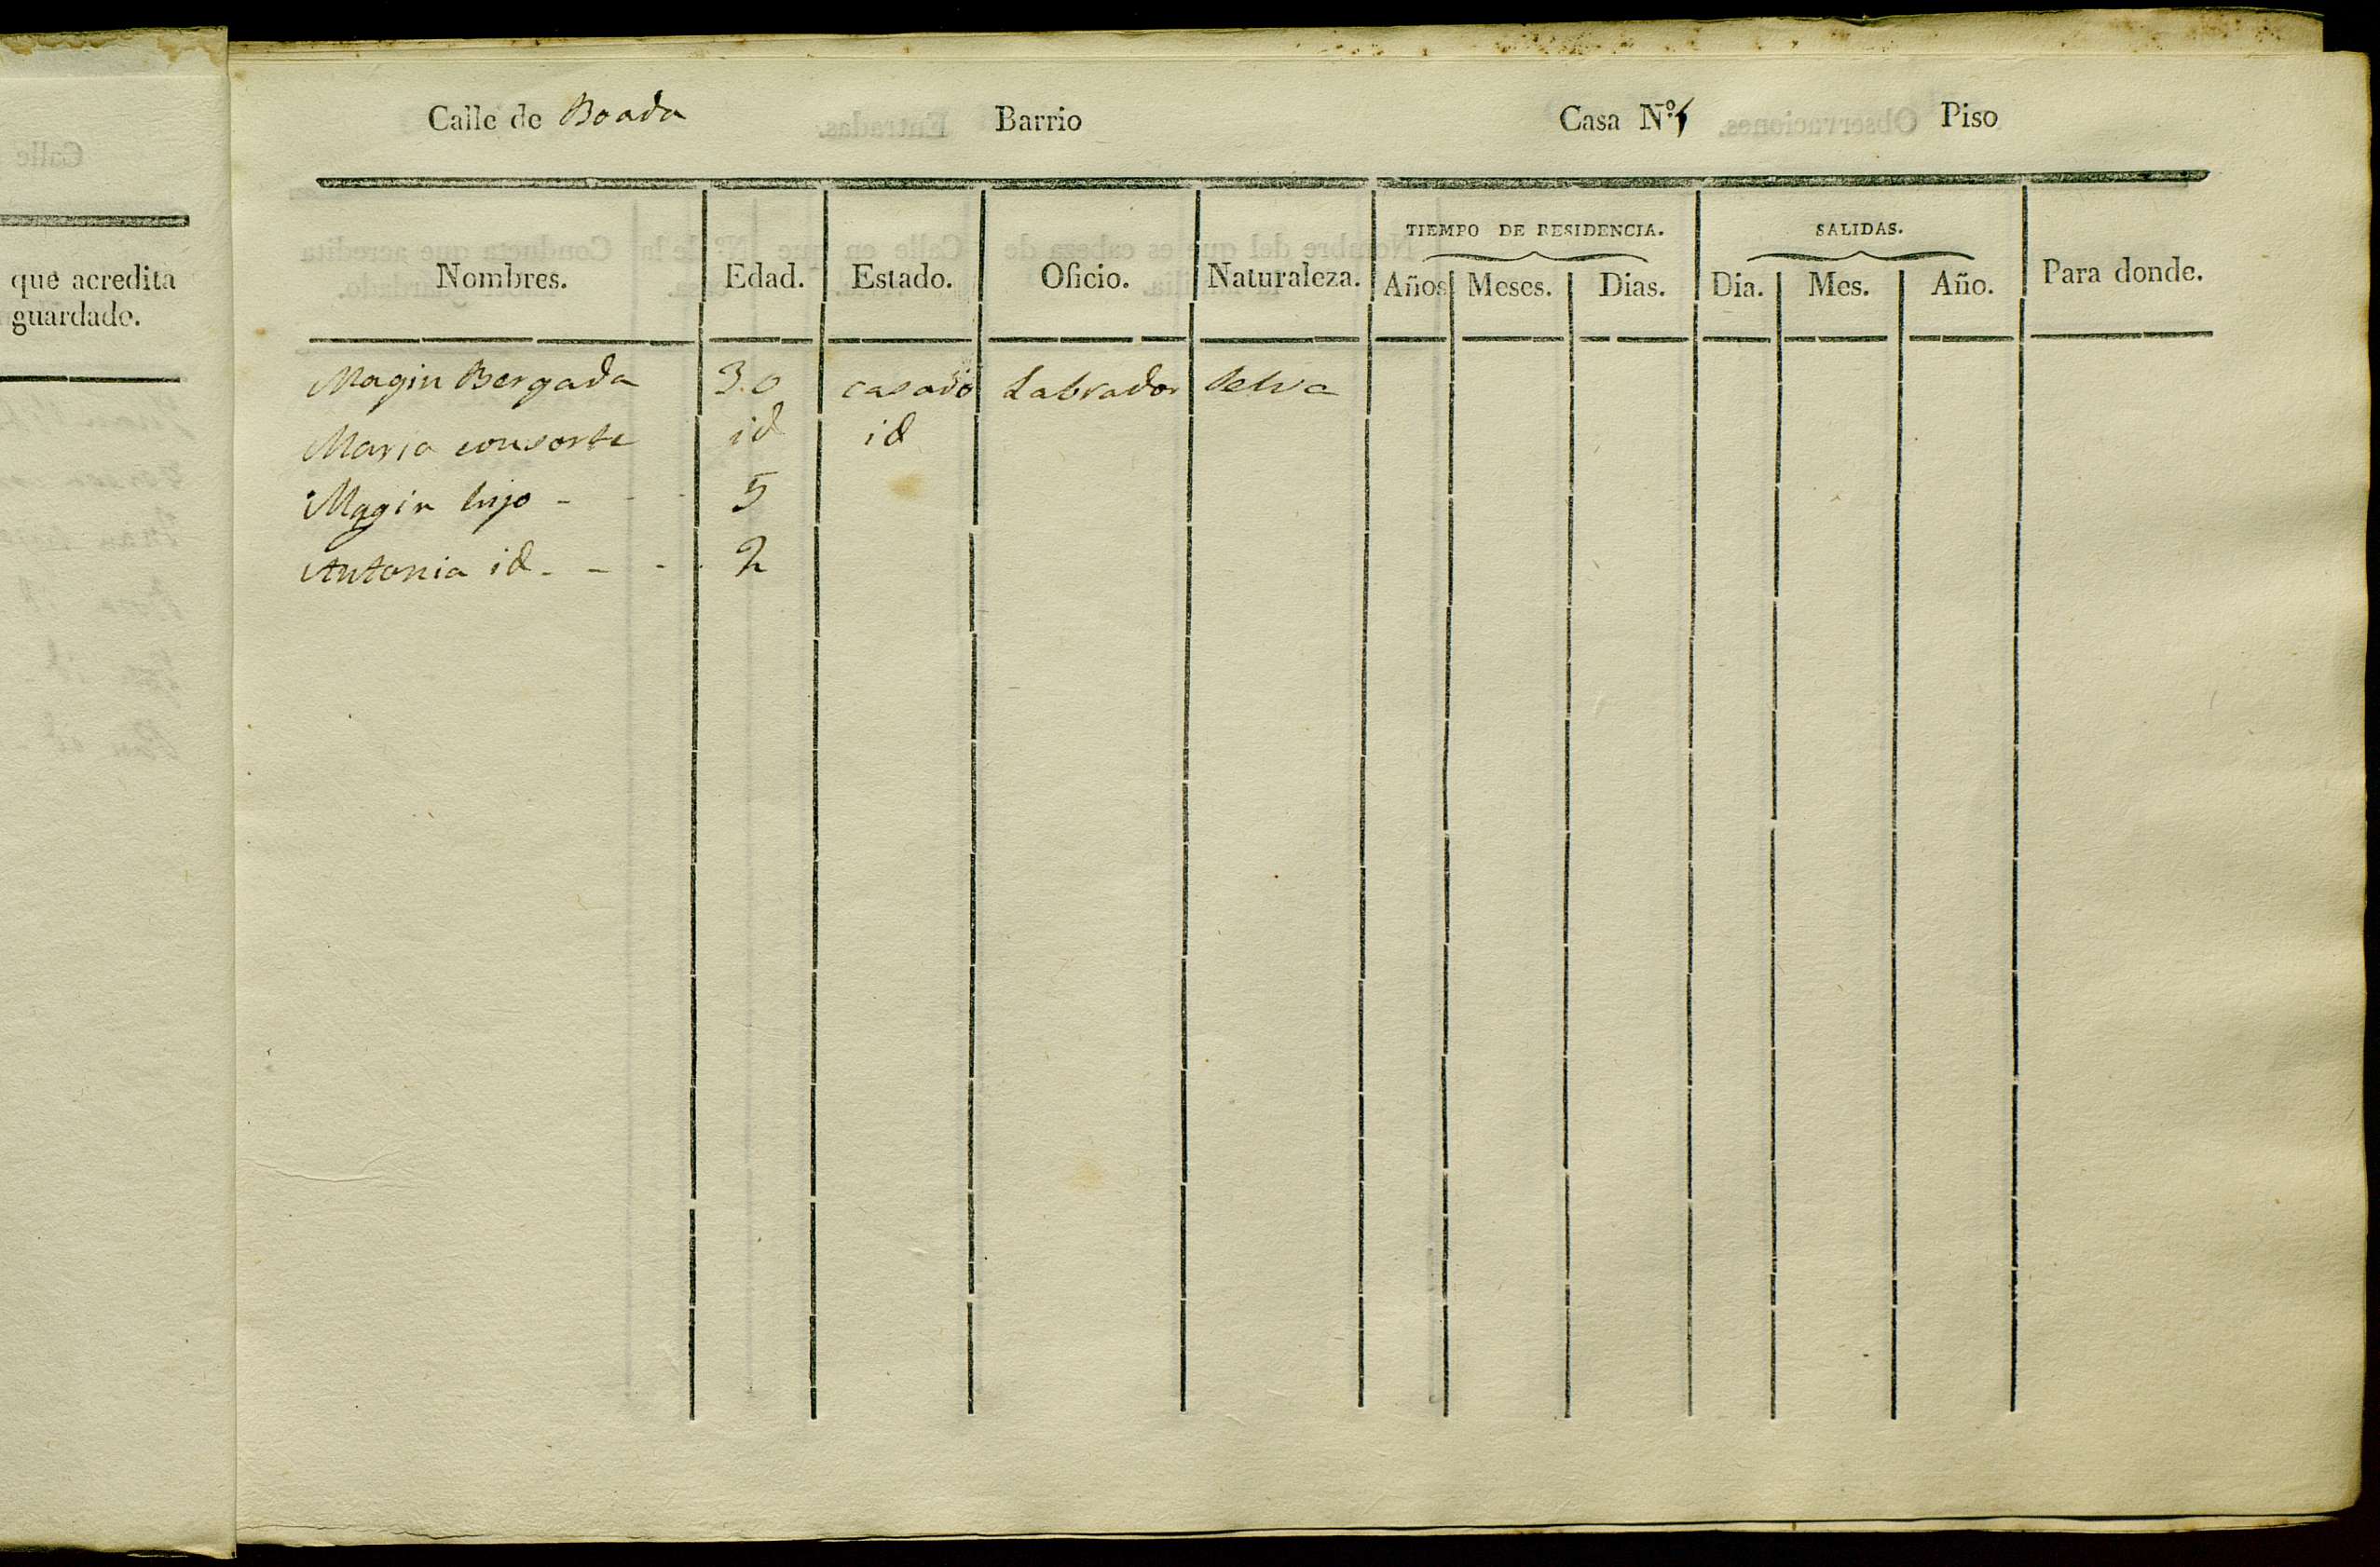 Calle de Boada Barrio Casa N.º 5 Piso
que acredita
guardado.
TIEMPO DE RESIDENCIA. SALIDAS.
Nombres. Edad. Estado. Oficio. Naturaleza. Años Meses. Dias. Dia. Mes. Año. Para donde.
Magin Bergada 30 casado Labrador Selva
Maria consorte id id
Magin hijo - - - 5
Antonia id - - - 2